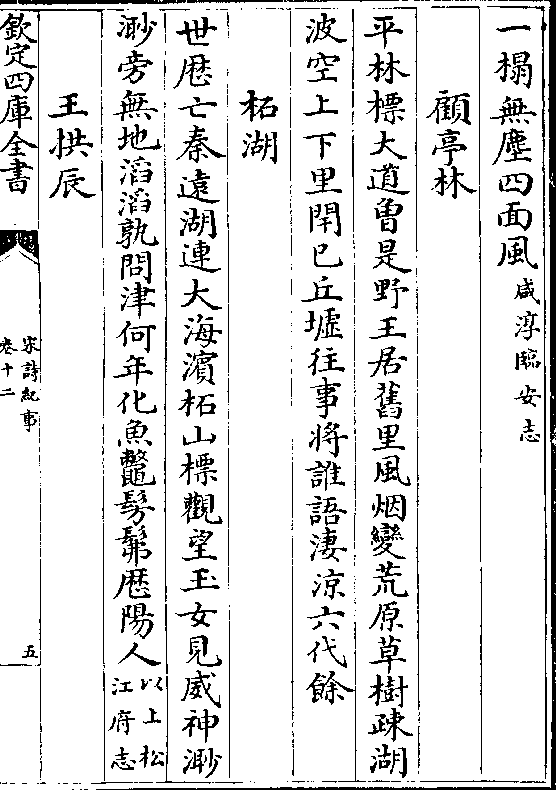 一榻無塵四面風咸淳臨安志
顧亭林
平林標大道曽是野王居舊里風烟變荒原草樹疎湖
波空上下里閈已丘墟往事將誰語淒涼六代餘
柘湖
世厯亡秦遠湖連大海濵柘山標觀望玉女見威神渺
渺旁無地滔滔孰問津何年化魚鼈髣髴厯陽人以上松江府志
王拱辰
欽定四庫全書
宋詩紀事
卷十二
五